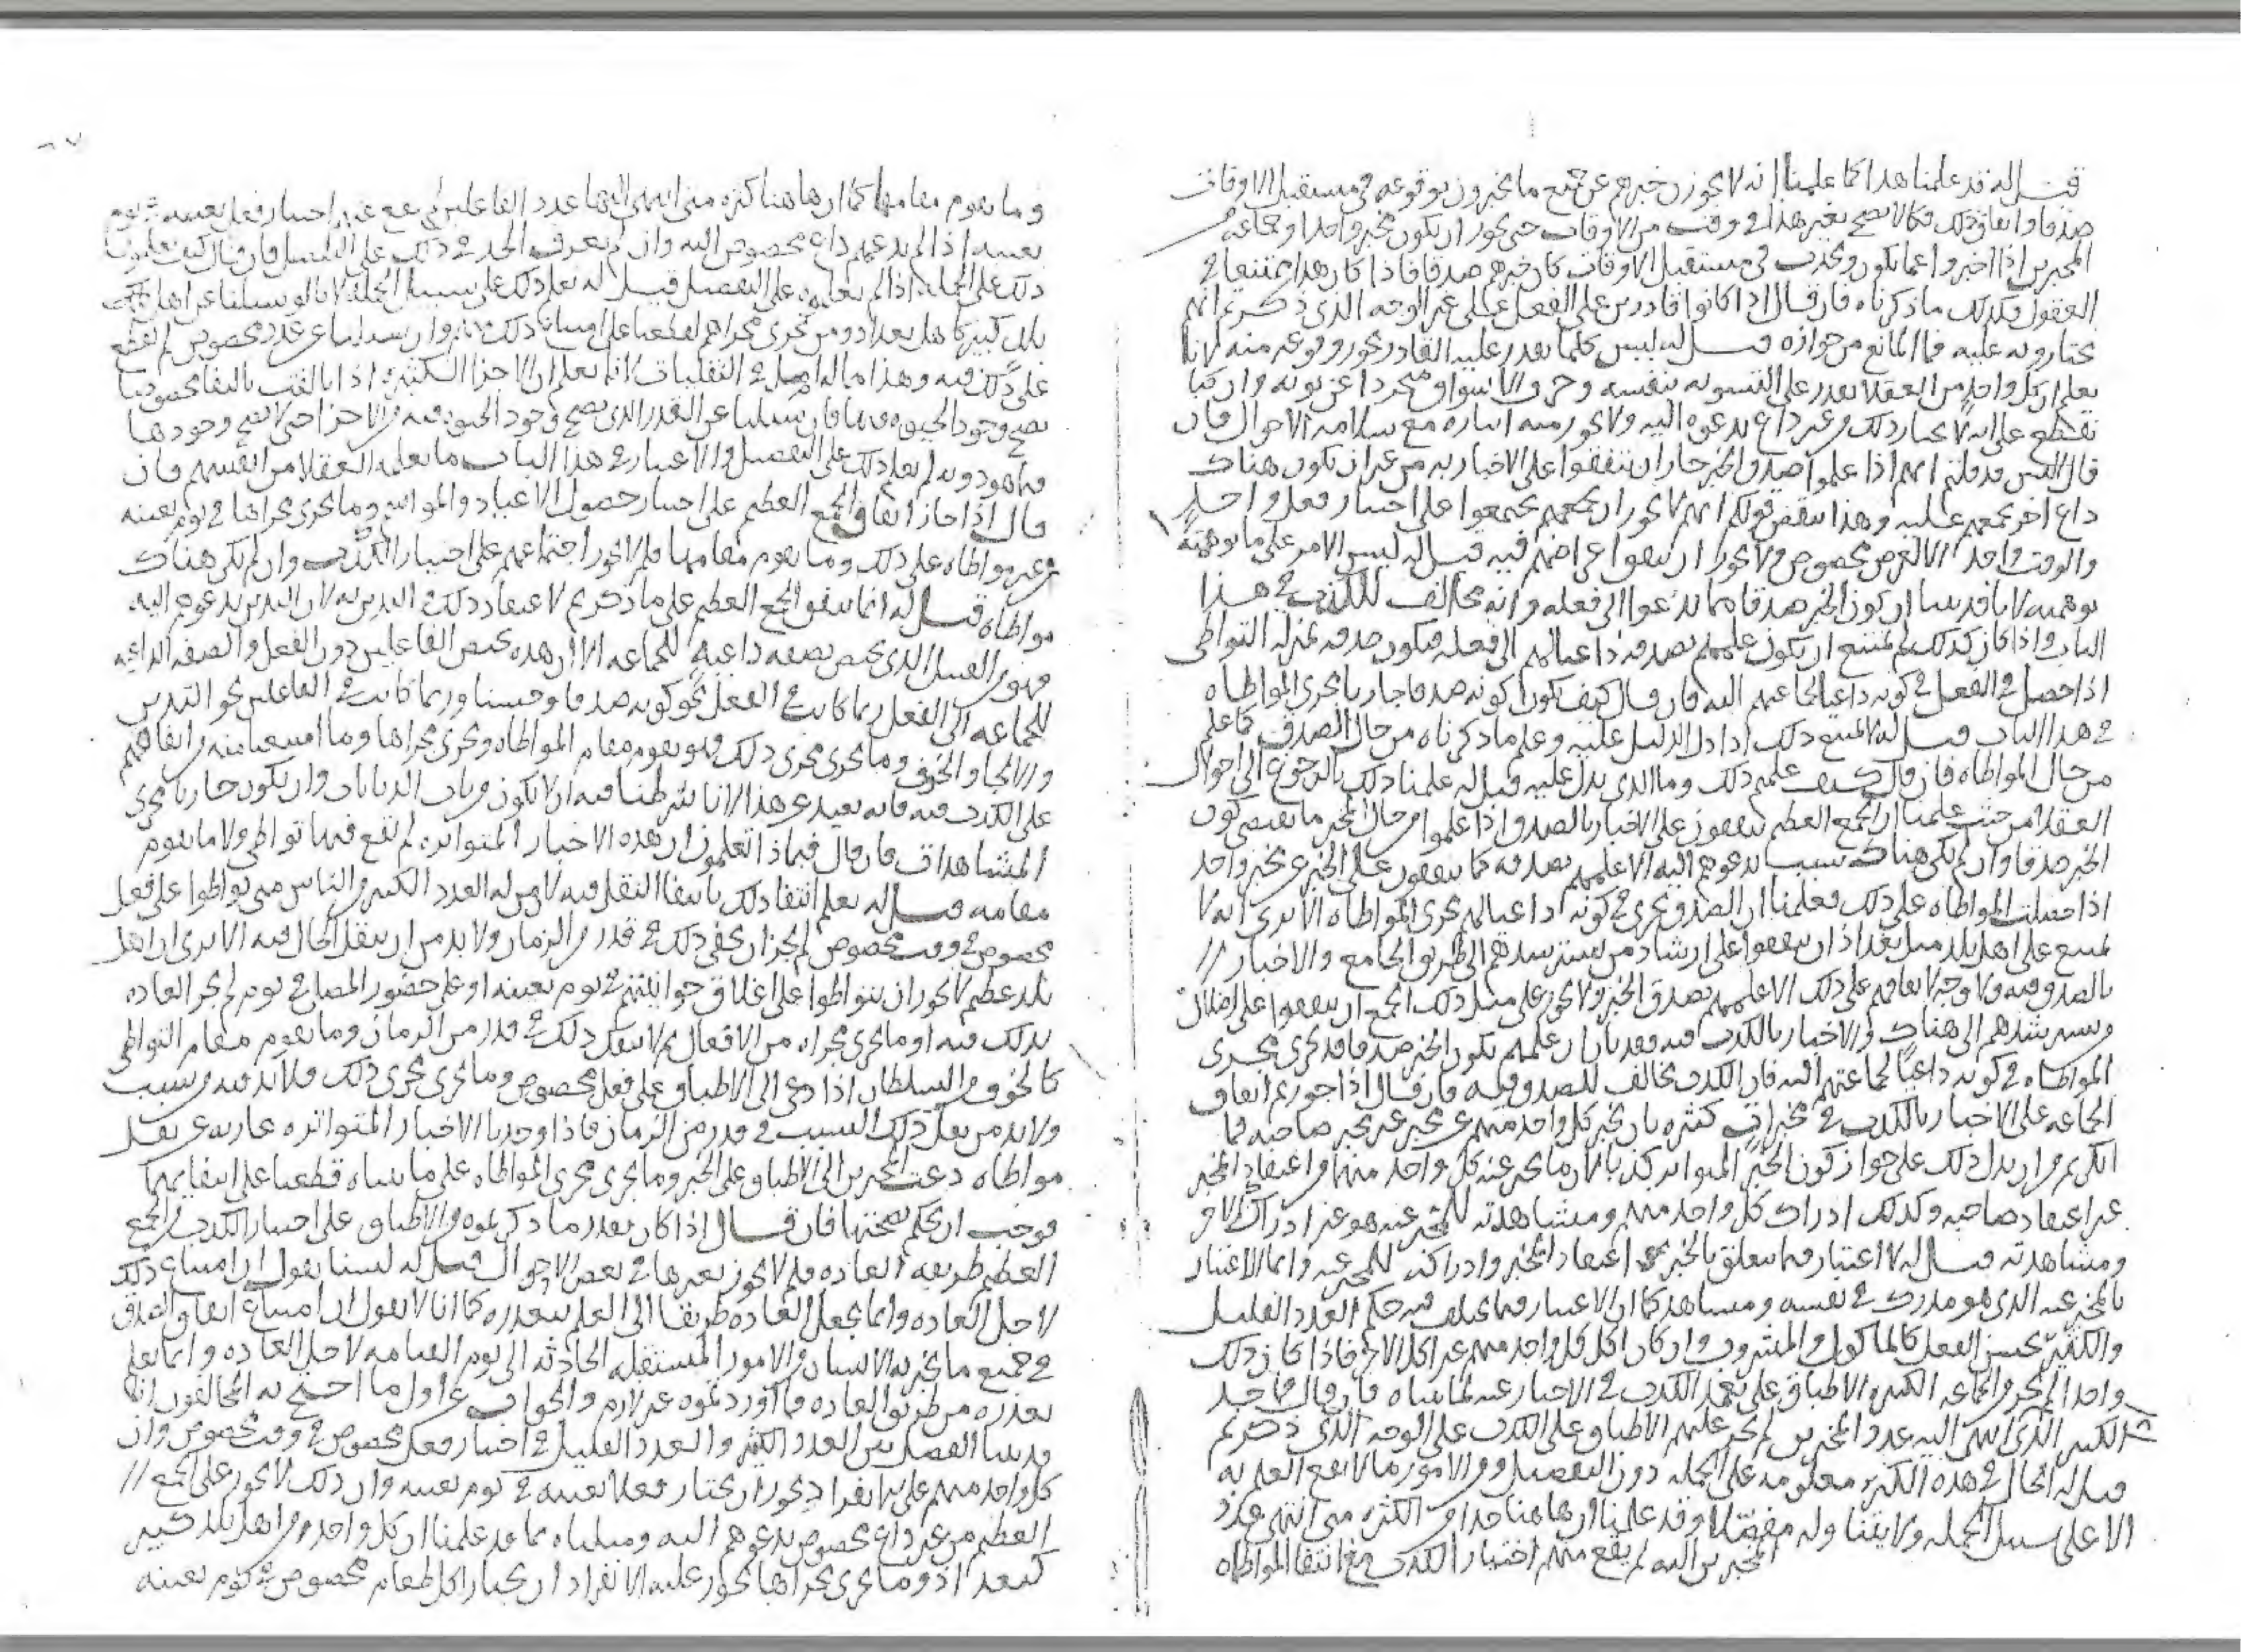 قيل له قد علمنا هذا كما علمنا انه لا يجوز خبرهم عن جميع ما يخبرون بوقوعه في مستقبل الاوقات
صدقا واتفاق ذلك فكما لا يصح بغير هذا في وقت من الاوقات حتى يجوز ان يكون مخبر واحد او جماعة
المخبرين اذا اخبروا عما يكون ويحدث في مستقبل الاوقات كان خبرهم صدقا فاذا كان هذا ممتنعا في
العقول فكذلك ما ذكرناه فان قال اذا كانوا قادرين على الفعل على غير الوجه الذي ذكرتم انهم
يختارونه عليه فما المانع من جوازه قيل له ليس كلما يقدر عليه القادر يجوز وقوعه منه لانا
نعلم ان كل واحد من العقلا يقدر على التشويه بنفسه وخرق الاسواق متجردا عن ثوبه وان كنا
نقطع على انه لا يختار ذلك من غير داع يدعوه اليه ولا يجوز منه ايثاره مع سلامة الاحوال فان
قال اليس قد قلتم انهم اذا علموا صدق الخبر جاز ان يتفقوا على الاخبار به من غير ان يكون هناك
داع اخر يجمعهم عليه وهذا ينقض قولكم انهم لا يجوز ان يجمعهم يجتمعوا على اختيار فعل واحد
والوقت واحد الا لغرض مخصوص ولا يجوز ان يتفقوا اعراضهم فيه قيل له ليس الامر على ما توهمته
توهمته لانا قد بينا ان كون الخبر صدقا مما يدعوا الى فعله وانه مخالف للكذب في هذا
الباب واذا كان كذلك لم يمتنع ان يكون علمهم بصدقه داعيا لهم الى فعله فيكون صدقه بمنزلة التواطي
اذا حصل في الفعل في كونه داعيا لجماعتهم اليه فان قال كيف يكون كونه صدقا جاريا مجرى المواطاه
في هذا الباب قيل له لا يمتنع ذلك اذا دل الدليل عليه وعلم ما ذكرناه من حال الصدق كما علم
من حال المواطاه فان قال كيف علمتم ذلك وما الذي يدل عليه قيل له علمنا ذلك بالرجوع الى احوال
العقلا من حيث علمنا ان الجمع العظيم يتفقون على الاخبار بالصدق اذا علموا من حال المخبر ما يقتضي كون
الخبر صدقا وان لم يكن هناك سبب يدعوهم اليه الا علمهم بصدقه كما يتفقون على الخبر عن مخبر واحد
اذا حصلت المواطاه على ذلك فعلمنا ان الصدق يجري في كونه داعيا لهم مجرى المواطاه الا ترى انه لا
يمتنع على اهل بلد مثل بغداذ ان يتفقوا على ارشاد من يسترشدهم الى طريق الجامع والاخبار //
بالصدق فيه ولا وجه لاتفاقهم على ذلك الا علمهم بصدق الخبر ولا يجوز على مثل ذلك الجمع ان يتفقوا على اضلال
مسترشدهم الى هناك والاخبار بالكذب فيه فقد بان ان علمهم بكون الخبر صدقا قد يجري مجرى
المواطاه في كونه داعيا لجماعتهم اليه فان الكذب مخالف للصدق فيه فان قال اذا جوزتم اتفاق
الجماعه على الاخبار بالكذب في مخبرات كثيره بان يخبر كل واحد منهم عن مخبر غير مخبر صاحبه فما
انكرتم من ان يدل ذلك على جواز كون الخبر المتواتر كذبا لان ما يخبر عنه كل واحد منهما واعتقاد المخبر
غير اعتقاد صاحبه وكذلك ادراك كل واحد منهم ومشاهدته للمخبر عنه هو غير ادراك الاخر
ومشاهدته قيل له لا اعتبار فيما يتعلق بالخبر اعتقاد المخبر وادراكه للمخبر عنه وانما الاعتبار
بالمخبر عنه الذي هو مدرك في نفسه ومشاهد كما ان الاعتبار فيما يختلف فيه حكم العدد القليل
والكثير بجنس الفعل كالماكول والمشروب وان كان اكل كل واحد منهم غير اكل الاخر فاذا كان ذلك
واحدا لم يجز في الجماعه الكثيره الاطباق على تعمد الكذب في الاخبار عنه لما بيناه فان قال فما حد
الكثير الذي اذا انتهى اليه عدد المخبرين لم يجز عليهم الاطباق على الكذب على الوجه الذي ذكرتم
قيل له الحال في هذه الكثره معلومه على الجمله دون التفصيل ومن الامور ما لا يقع العلم به
الا على سبيل الجمله ولا يتنا وله مفصلا وقد علمنا ان هاهنا حدا من الكثره متى انتهى عدد
المخبرين اليه لم يقع منهم اختيار الكذب مع انتفا المواطاه
وما يقوم مقامها كما ان هاهنا كثره متى انتهى اليها عدد الفاعلين لم يقع منهم اختيار فعل بعينه في يوم
بعينه اذا لم يدعهم داع مخصوص اليه وان لم نعرف الحد في ذلك على التفصيل فان قال كيف تعلمون
ذلك على الجمله اذا لم تعلموه على التفصيل قيل له نعلم ذلك على سبيل الجمله لانا لو سئلنا عن اهل
بلد كبير كاهل بغداد ومن يجري مجراهم لقطعنا على امتناع ذلك منهم وان سئلنا عن عدد مخصوص لم نقطع
على ذلك فيه وهذا مما له اصل في العقليات لانا نعلم ان الاجزا الكثيره اذا تالفت تاليفا مخصوصا
يصح وجود الحيوه فيها فان سئلنا عن القدر الذي يصح وجود الحيوه فيه من الاجزا حتى لا يصح وجودها
فيما هو دونه لم نعلم ذلك على التفصيل والاعتبار في هذا الباب ما يعلمه العقلا من انفسهم فان
قال اذا جاز اتفاق الجمع العظيم على اختيار حضور الاعياد والمواسم وما يجري مجراها في يوم بعينه
من غير مواطاه على ذلك وما يقوم مقامها فلم لا يجوز اجتماعهم على اختيار الكذب وان لم يكن هناك
مواطاه قيل له انما يتفق الجمع العظيم على ما ذكرتم لاعتقاد ذلك في التدين به لان التدين يدعوهم اليه
فهو من القبيل الذي يختص بصفه داعيه للجماعه الا ان هذه يختص الفاعلين دون الفعل والصفه الداعيه
للجماعه الى الفعل ربما كانت في الفعل نحو كونه صدقا وحسنا وربما كانت في الفاعلين نحو التدين
والالجا والخوف وما يجري مجرى ذلك فهو يقوم مقام المواطاه ويجري مجراها وما امتنعنا منه من اتفاقهم
على الكذب فيه فانه بعيد عن هذا لانا شرطنا فيه ان لا يكون من باب الديانات وان يكون جاريا مجرى
المشاهدات فان قال فبماذا تعلمون ان هذه الاخبار المتواتره لم تقع فيها تواطي ولا ما يقوم
مقامه قيل له نعلم انتفا ذلك بانتفا النقل فيه لان مثل العدد الكثير من الناس متى تواطوا على فعل
مخصوص في وقت مخصوص لم يجز ان يخفى ذلك في قدر من الزمان ولا بد من ان ينقل الحال فيه الا ترى ان اهل
بلد عظيم لا يجوز ان يتواطوا على اغلاق حوانيتهم في يوم بعينه او على حضور المصلى في يوم لم تجر العاده
بذلك فيه او ما يجري مجراه من الافعال ثم لا ينقل ذلك في قدر من الزمان وما يقوم مقام التواطي
كالخوف من السلطان اذا دعى الى الاطباق على فعل مخصوص وما يجري مجرى ذلك فلا بد فيه من سبب
ولا بد من نقل ذلك السبب في قدر من الزمان فاذا وجدنا الاخبار المتواتره عاريه عن نقل
مواطاه دعت المخبرين الى الاطباق على الخبر وما يجري مجرى المواطاه على ما بيناه قطعنا على انتفايهما
فوجب ان يحكم بصحتها فان قال اذا كان تعذر ما ذكرتموه من الاطباق على اختيار الكذب في الجمع
العظيم طريقه العاده فلم لا يجوز تغيرها في بعض الاحوال قيل له لسنا نقول ان امتناع ذلك
لاجل العاده وانما نجعل العاده طريقا الى العلم بتعذره كما انا لا نقول ان امتناع اتفاق الصدق
في جميع ما يخبر به الانسان من الامور المستقبله الحادثه الى يوم القيامه لاجل العاده وانما نعلم
تعذره من طريق العاده فما اوردتموه غير لازم والجواب عن اول ما احتج به المخالفون انا
قد بينا الفصل بين العدد الكثير والعدد القليل في اختيار فعل مخصوص في وقت مخصوص وان
كل واحد منهم على انفراده يجوز ان يختار فعلا بعينه في يوم بعينه وان ذلك لا يجوز على الجمع //
العظيم من غير داع مخصوص يدعوهم اليه ومثلناه بما قد علمنا ان كل واحد من اهل بلد كبير
كبغداذ وما يجري مجراها يجوز عليه الانفراد ان يختار اكل طعام مخصوص في يوم بعينه